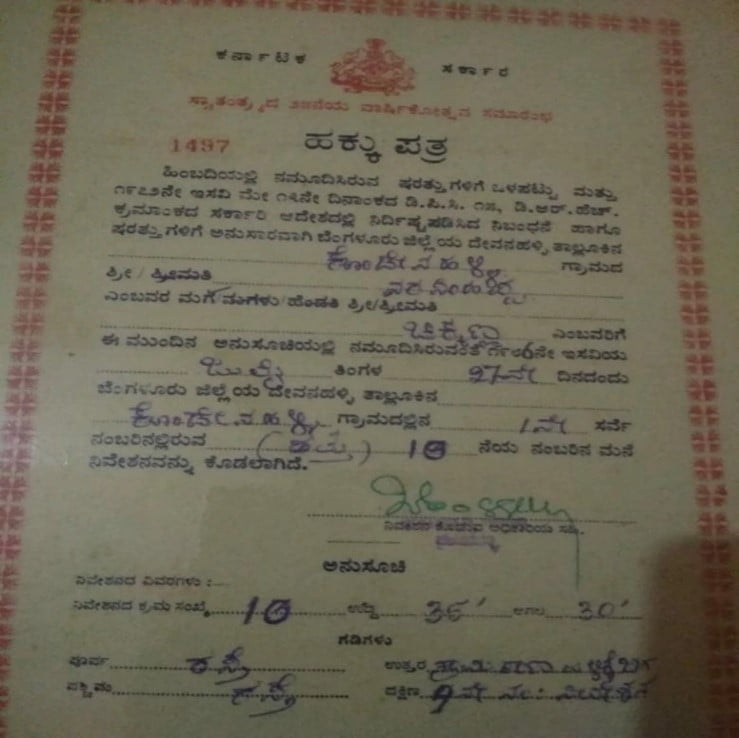 ಕರ್ನಾಟಕ ಸರ್ಕಾರ
ಸ್ವಾತಂತ್ರ್ಯದ ೨೫ನೆಯ ವಾರ್ಷಿಕೋತ್ಸವ ಸಮಾರಂಭ
1497 ಹಕ್ಕು ಪತ್ರ
ಹಿಂಬದಿಯಲ್ಲಿ ನಮೂದಿಸಿರುವ ಷರತ್ತುಗಳಿಗೆ ಒಳಪಟ್ಟು ಮತ್ತು
೧೯೭೨ನೇ ಇಸವಿ ಮೇ ದಿನಾಂಕದ ಡಿ.ಪಿ.ಸಿ. ೧೫, ಡಿ.ಆರ್.ಹೆಚ್.
ಕ್ರಮಾಂಕದ ಸರ್ಕಾರಿ ಆದೇಶದಲ್ಲಿ ನಿರ್ದಿಷ್ಟಪಡಿಸಿದ ನಿಬಂಧನೆ ಹಾಗೂ
ಷರತ್ತುಗಳಿಗೆ ಅನುಸಾರವಾಗಿ ಬೆಂಗಳೂರು ಜಿಲ್ಲೆಯ ದೇವನಹಳ್ಳಿ ತಾಲ್ಲೂಕಿನ
ಗ್ರಾಮದ
ಶ್ರೀ/ಶ್ರೀಮತಿ
ಎಂಬವರ ಮಗ/ಮಗಳು/ಹೆಂಡತಿ ಶ್ರೀ/ಶ್ರೀಮತಿ
ಚಿಕ್ಕಣ್ಣ ಎಂಬವರಿಗೆ
ಈ ಮುಂದಿನ ಅನುಸೂಚಿಯಲ್ಲಿ ನಮೂದಿಸಿರುವಂತೆ ಇಸವಿಯ
ಜುಲೈ ತಿಂಗಳ 27ನೇ ದಿನದಂದು
ಬೆಂಗಳೂರು ಜಿಲ್ಲೆಯ ದೇವನಹಳ್ಳಿ ತಾಲ್ಲೂಕಿನ
ಗ್ರಾಮದಲ್ಲಿನ 1ನೇ ಸರ್ವೆ
ನಂಬರಿನಲ್ಲಿರುವ (ಹತ್ತು) 10 ನೆಯ ನಂಬರಿನ ಮನೆ
ನಿವೇಶನವನ್ನು ಕೊಡಲಾಗಿದೆ.
ನಿವೇಶನ ಕೊಡುವ ಅಧಿಕಾರಿಯ ಸಹಿ.
ಅನುಸೂಚಿ
ನಿವೇಶನದ ವಿವರಗಳು :
ನಿವೇಶನದ ಕ್ರಮ ಸಂಖ್ಯೆ 10 ಉದ್ದ 35' ಅಗಲ 30'
ಗಡಿಗಳು
ಪೂರ್ವ ರಸ್ತೆ ಉತ್ತರ
ಪಶ್ಚಿಮ ರಸ್ತೆ ದಕ್ಷಿಣ 9ನೇ ನಂ: ನಿವೇಶನ